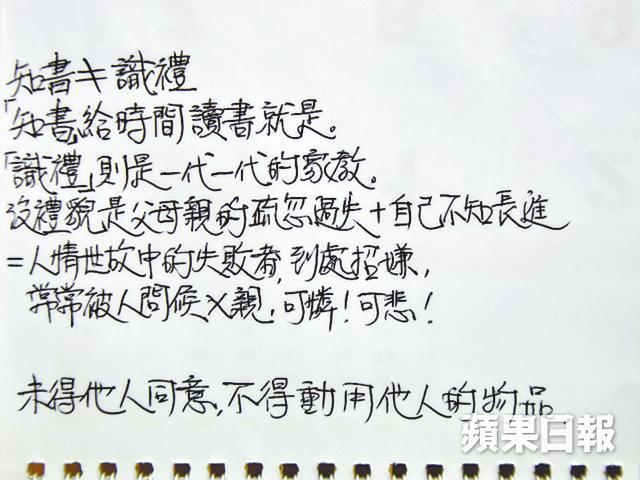 知書≠識禮
「知書」給時間讀書就是。
「識禮」則是一代一代的家教。
沒禮貌是父母親的疏忽過失+自己不知長進
=人情世故中的失敗者,到處招嫌,
常常被人問候ㄨ親,可憐!可悲!
未得他人同意,不得動用他人的物品.
蘋果日報